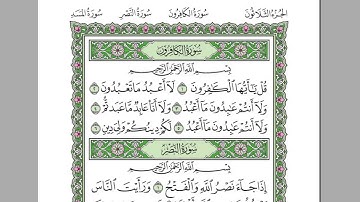 الجزء الثلاثون سورة الكافرون سورة النصر سورة المسد
سورة الكافرون
بِسْمِ اللَّهِ الرَّحْمَٰنِ الرَّحِيمِ
قُلْ يَٰٓأَيُّهَا ٱلْكَٰفِرُونَ ١ لَآ أَعْبُدُ مَا تَعْبُدُونَ ٢
وَلَآ أَنتُمْ عَٰبِدُونَ مَآ أَعْبُدُ ٣ وَلَآ أَنَا۠ عَابِدٌ مَّا عَبَدتُّمْ ٤
وَلَآ أَنتُمْ عَٰبِدُونَ مَآ أَعْبُدُ ٥ لَكُمْ دِينُكُمْ وَلِىَ دِينِ ٦
سورة النصر
بِسْمِ اللَّهِ الرَّحْمَٰنِ الرَّحِيمِ
إِذَا جَآءَ نَصْرُ ٱللَّهِ وَٱلْفَتْحُ ١ وَرَأَيْتَ ٱلنَّاسَ